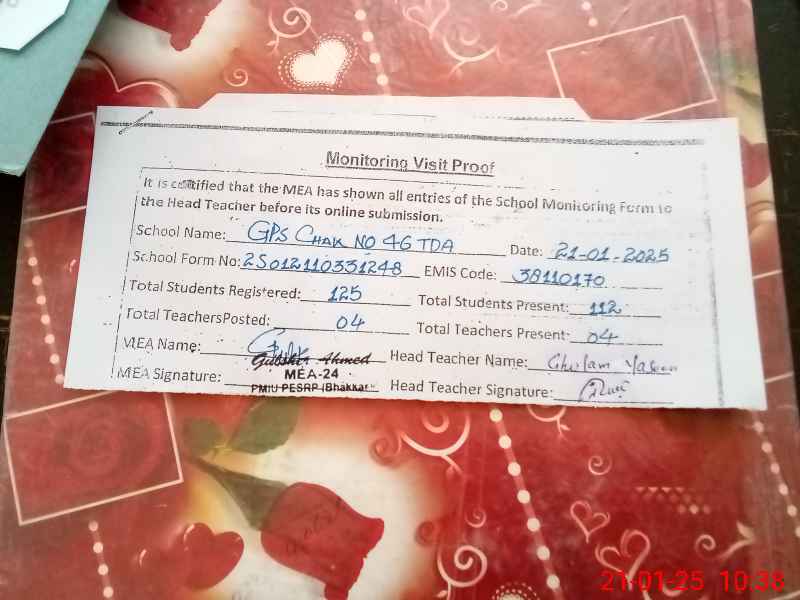 Monitoring Visit Proof
It is certified that the MEA has shown all entries of the School Monitoring Form to
the Head Teacher before its online submission.
School Name: GPS CHAK NO 46 TDA Date: 21-01-2025
School Form No: 25012110331248 EMIS Code: 38110170
Total Students Registered: 125 Total Students Present: 112
Total TeachersPosted: 04 Total Teachers Present: 04
MEA Name: Gulsher Ahmed Head Teacher Name: Ghulam Yaseen
MEA-24
MEA Signature: PMIU PESRP (Bhakkar) Head Teacher Signature:
21-01-25 10:38